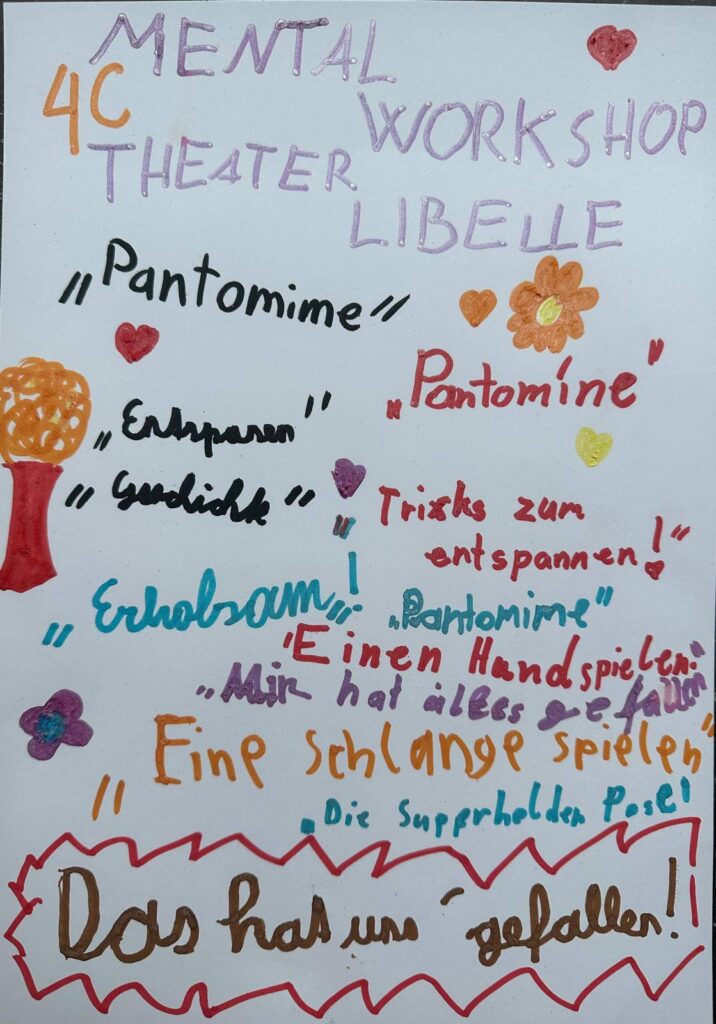 MENTAL
4C
WORKSHOP
THEATER
LIBELLE
„Pantomime"
„Pantomine"
„Entsparen"
„Geschichte"
"Tricks zum
entspannen!"
„Erholsam„!
„Pantomime"
"Einen Hund spielen."
„Mir hat alles gefallen"
"Eine Schlange spielen"
„Die Supperhelden Pose!
Das hat uns gefallen!